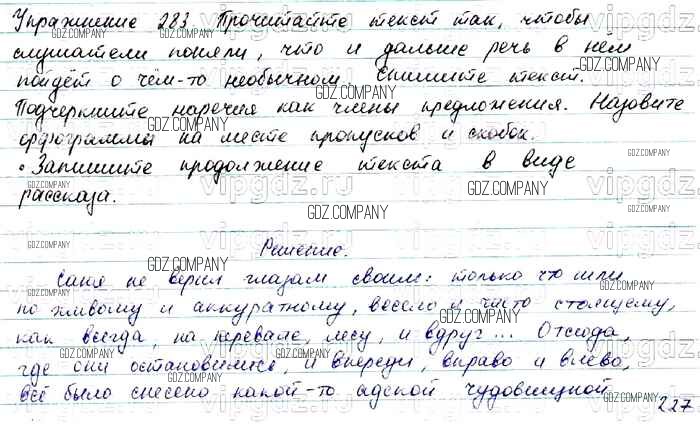 Упражнение 283 Прочитайте текст так, чтобы
слушатели поняли, что и дальше речь в нём
пойдёт о чём-то необычном. Спишите текст.
Подчеркните наречия как члены предложения. Назовите
орфограммы на месте пропусков и скобок.
• Запишите продолжение текста в виде
рассказа.
Решение.
Саня не верил глазам своим: только что шли
по живому и аккуратному, весело и чисто стоящему,
как всегда, на перевале, лесу, и вдруг... Отсюда,
где они остановились, и впереди, вправо и влево,
всё было снесено какой-то адской чудовищной
227